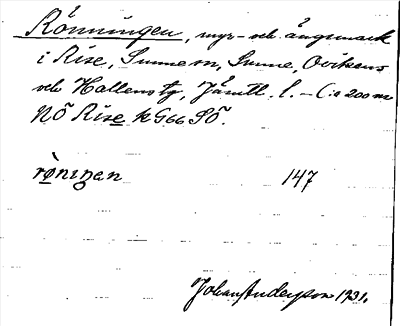 Rönningen, myr- och ängsmark
i Rise, Sunne sn, Sunne, Ovikens
och Hallens tg, Jämtl. l. – C:a 200 m
NÖ Rise k G66 SÖ.
röningen 147
Johan Anderson 1931.